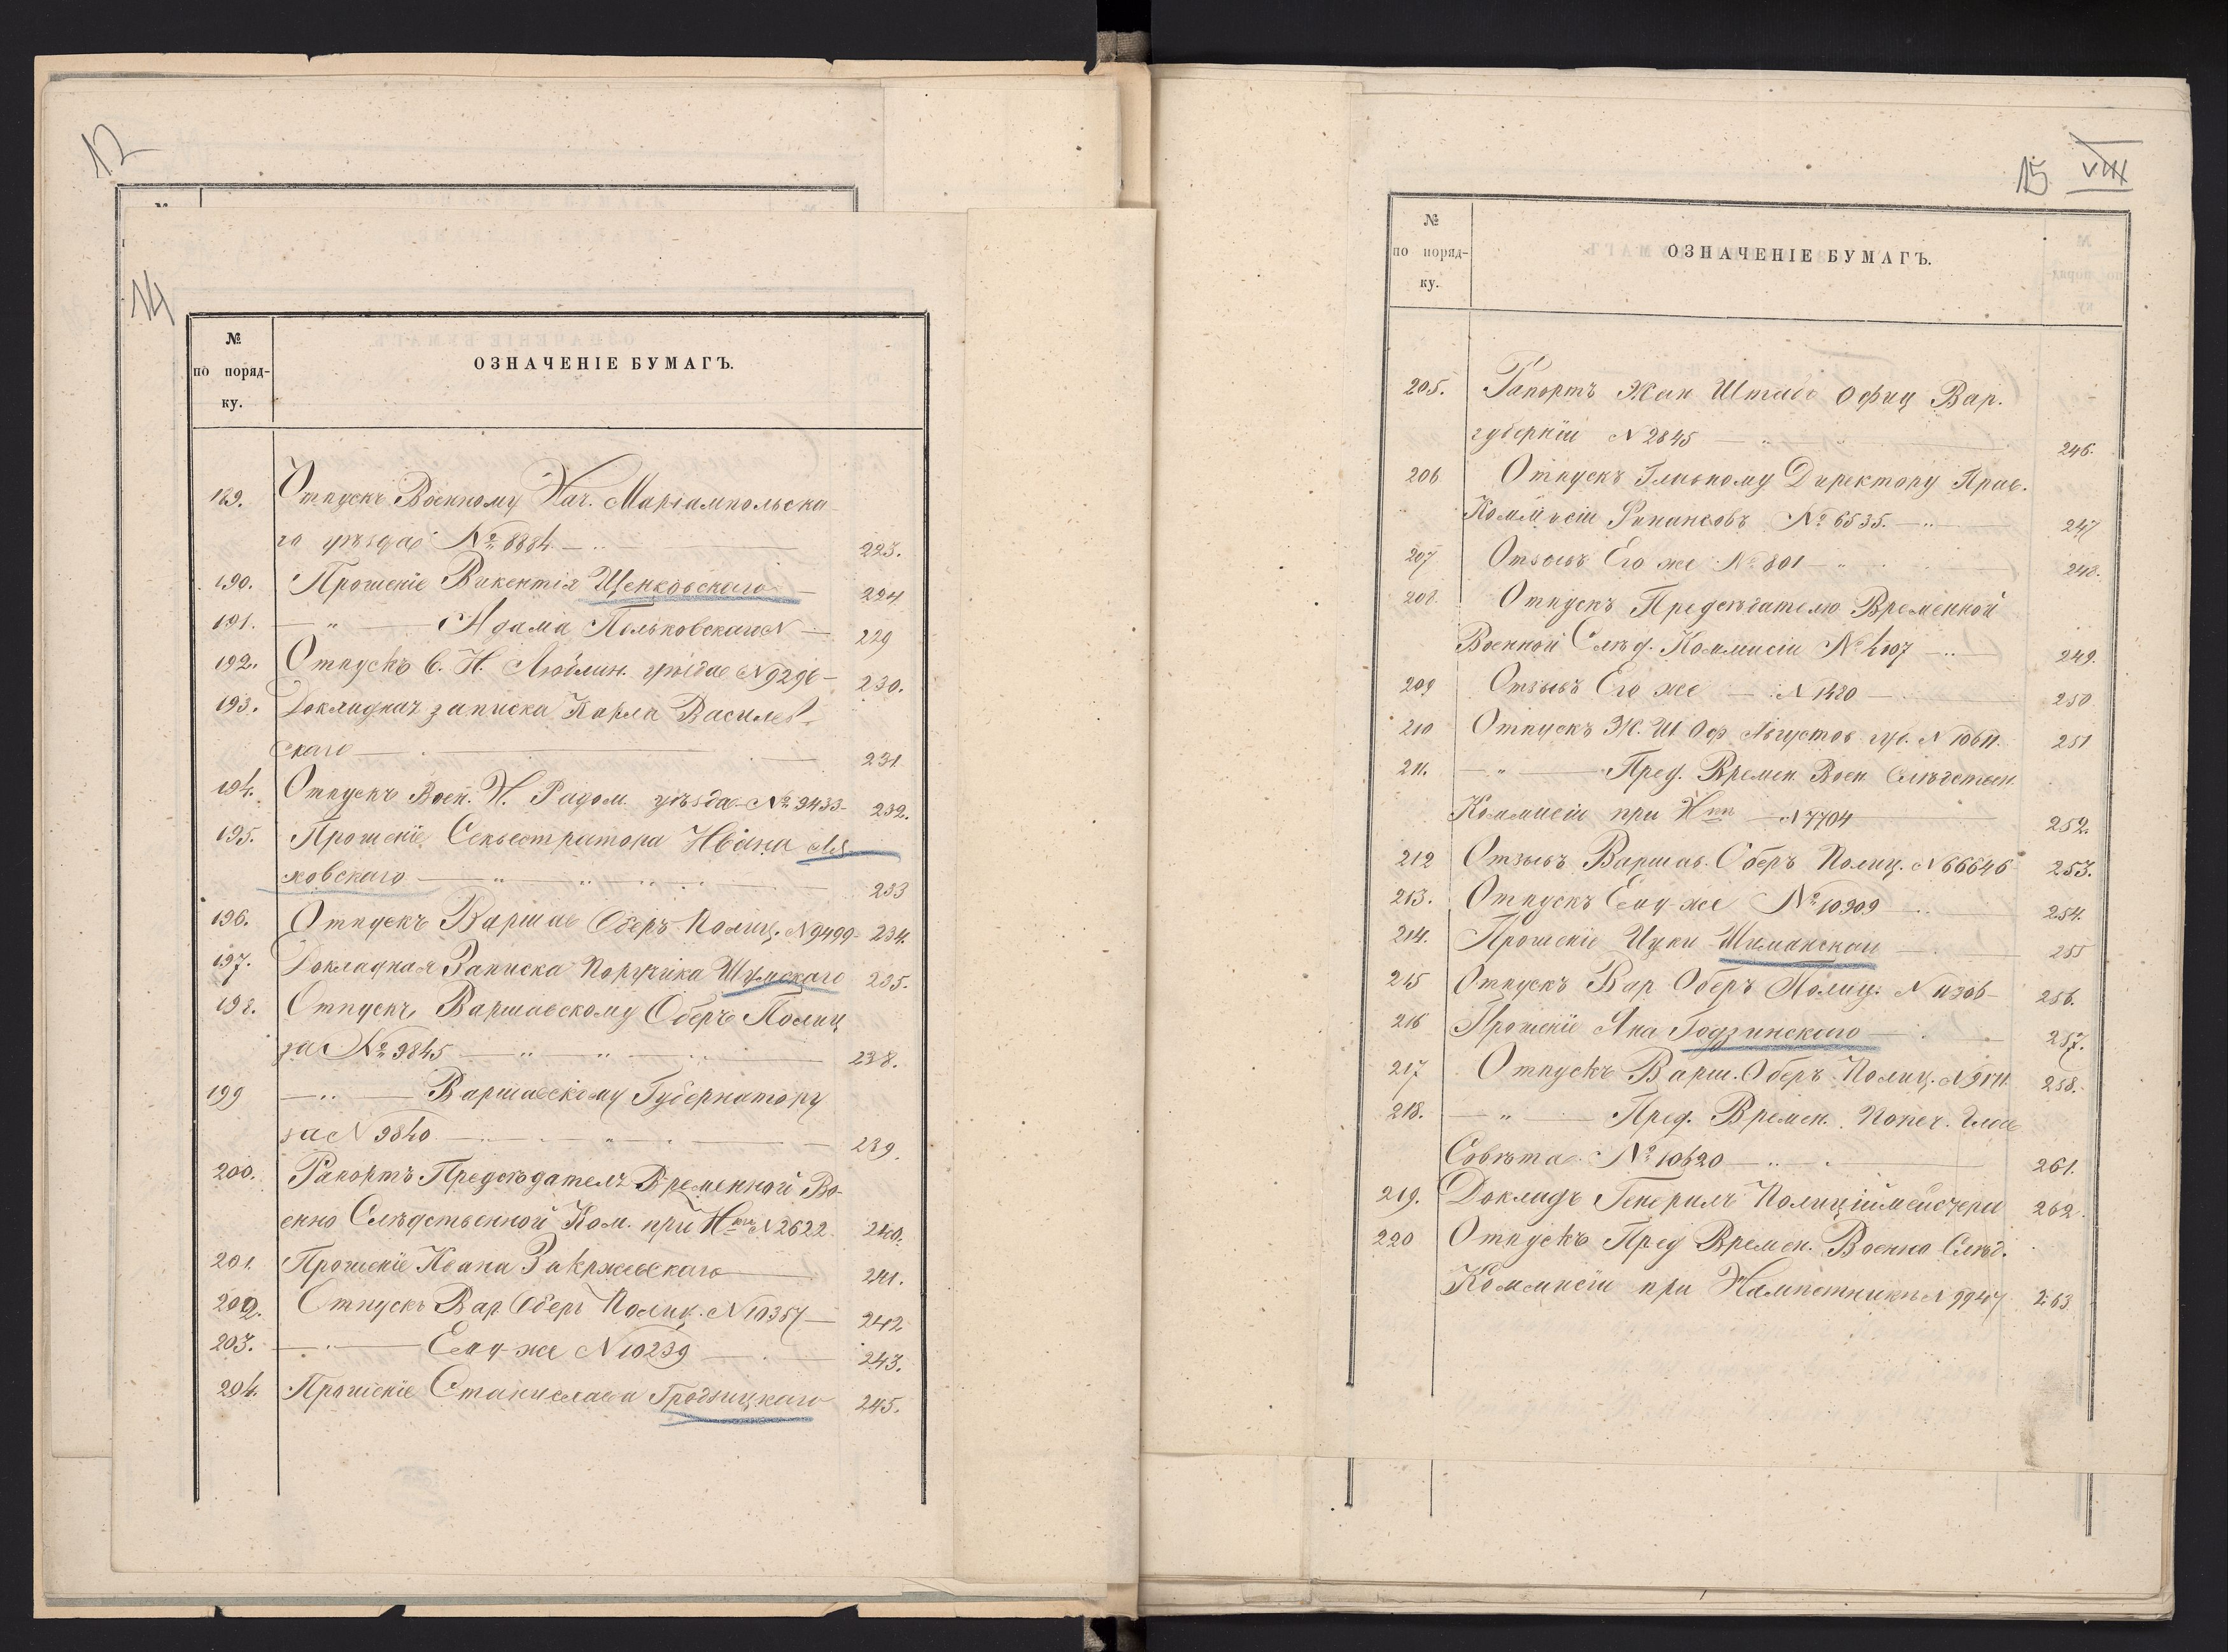 12
14
№
по поряд-
ку.
ОЗНАЧЕНІЕ БУМАГЪ.
189. Отпускъ Военному Нач. Маріампольска-
го уѣзда № 8884 — 223.
190. Прошеніе Викентія Щенковскаго — 224
191. — " — Адама Польковскаго — 229
192. Отпускъ В. Н. Люблин. уѣзда N 9296 — 230.
193. Докладная записка Карла Василев-
скаго — 231
194. Отпускъ Воен. Н. Радом. уѣзда № 9433 — 232.
195. Прошеніе Секвестратора Ивана Ля-
ховскаго — " — 233
196. Отпускъ Варшав Оберъ-Полиц. N 9499 — 234.
197. Докладная Записка Поручика Шумскаго 235.
198. Отпускъ Варшавскому Оберъ Полиц
за № 9845 — " — " — 238.
199 — " — Варшавскому Губернатору
за N 9840 — " — 239.
200. Рапортъ Предсѣдателя Временной Во-
енно Слѣдственной Ком. при Н N 2622. 240.
201. Прошеніе Ивана Закржевскаго — 241.
202. Отпускъ Вар Оберъ Полиц. N 10387 — 242
203. — " — Ему-же N 10239 — 243.
204. Прошеніе Станислава Гродзицкаго 245.
15 VIII
№
по поряд-
ку.
ОЗНАЧЕНІЕ БУМАГЪ.
205. Рапортъ Жан Штабъ Офиц Вар.
губерніи N 2845 — " — 246.
206 Отпускъ Главному Директору Прав.
Коммисіи Финансовъ № 6535. — " — 247
207 Отзывъ Его же № 801 — 248.
208. Отпускъ Предсѣдателю Временной
Военной Слѣд. Коммисіи № 4107 — " — 249.
209 Отзывъ Его же — N 1480 — 250
210 Отпускъ Ж. Ш Оф Августов. губ. N 10611. 251
211. — " — Пред. Времен. Воен Слѣдствен.
Коммисіи при Н — N 7704 252.
212 Отзывъ Варшав. Оберъ Полиц. N 66646 253.
213. Отпускъ Ему-же № 10909 — 254.
214. Прошеніе Цуки Шиманскаи — 255
215 Отпускъ Вар Оберъ Полиц. N 11306 — 256.
216 Прошеніе Яна Годзинскаго — 257.
217 Отпускъ Варш. Оберъ-Полиц. 258.
218. — " — Пред. Времен. Попеч. Глав
Совѣта № 10620 — " — 261.
219. Докладъ Генералъ Полиціймейстера 262.
220 Отпускъ Пред Времен. Военно Слѣд.
Коммисіи при Намѣстникѣ N 9947 263